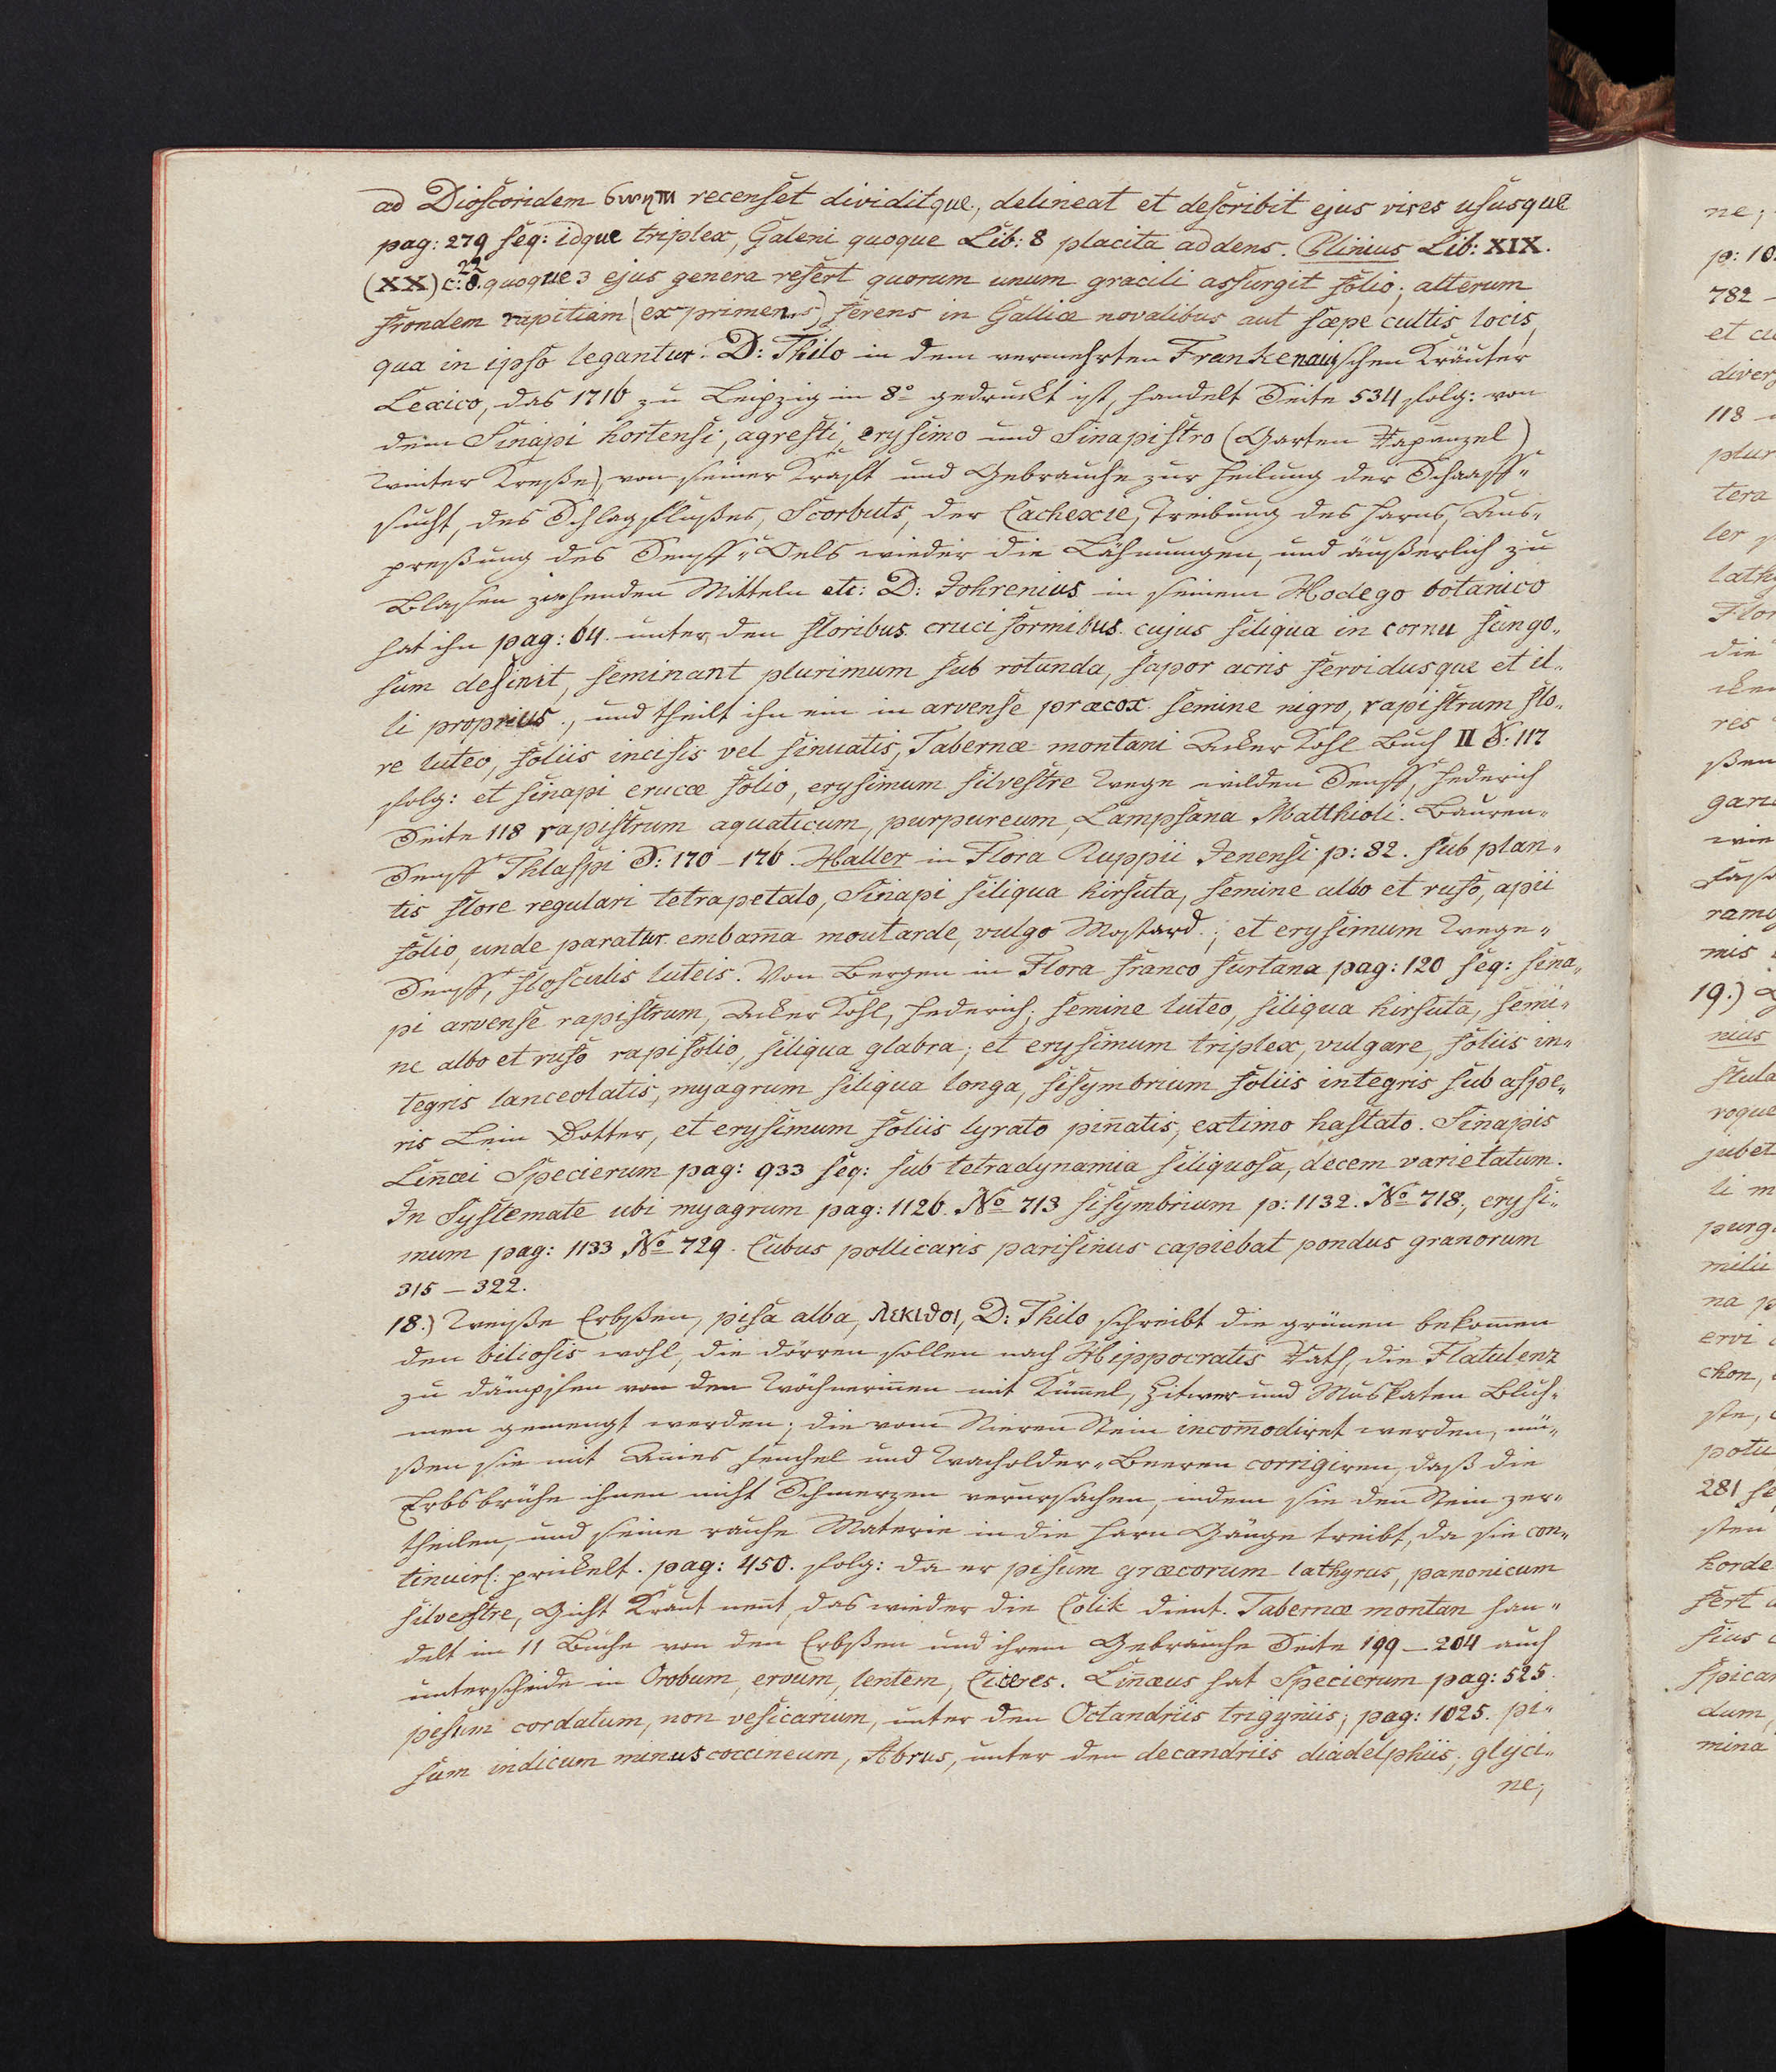 ad Dioscoridem σινηπι recenset dividitque, delineat et describit ejus vires ususque
pag: 279 seq: idque triplex, Galeni quoque Lib: 8 placita addens. Plinius Lib: XIX.
(XX) c: 8. 22 quoque 3 ejus genera refert quorum unum gracili assurgit folio; alterum
frondem rapitiam (exprimens) ferens in Galliæ novalibus aut sæpe cultis locis,
qua in ipso legantur. D: Thilo in dem vermehrten Frankenauischen Kräuter
Lexico, das 1716 zu Leipzig in 8º gedruckt ist, handelt Seite 534 folg: von
dem Sinapi hortensi, agresti, erysimo und Sinapistro (Garten Rapunzel
Winter Kreße), von seiner Kraft und Gebrauche zur Heilung der Schaaff-
sucht, des Schlagflußes, Scorbuts, der Cachexie, Treibung des Harns, Aus-
preßung des Senff-Oels wieder die Lähmungen, und äußerlich zu
Blasen ziehenden Mitteln etc: D: Johrenius in seinem Hodego botanico
hat ihn pag: 64. unter den floribus cruciformibus. cujus siliqua in cornu fungo-
sum desinit, seminant plurimum sub rotunda, sapor acris fervidusque et il-
li proprius., und theilt ihn ein in arvense præcox semine nigro, rapistrum flo-
re luteo, foliis incisis vel sinuatis, Tabernæ montani Acker Kohl Buch II S: 117
folg: et sinapi erucæ folio, erysimum silvestre Wege wilden Senff, Hederich
Seite 118 rapistrum aquaticum, purpureum, Lampsana Matthioli. Bauren-
Senff Thlaspi S: 170 – 176. Haller in Flora Ruppii Jenensi p: 82. sub plan-
tis flore regulari tetrapetalo, Sinapi siliqua hirsuta, semine albo et rufo, apii
folio, unde paratur embam̄a moutarde, vulgo Mostard.; et erysimum Wege-
Senff, flosculis luteis. Von Bergen in Flora francofurtana pag: 120 seq: sina-
pi arvense rapistrum, Acker Kohl, Hederich; semine luteo, siliqua hirsuta, semi-
ne albo et rufo rapifolio, siliqua glabra; et erysimum triplex, vulgare, foliis in-
tegris lanceolatis, myagrum siliqua longa, sisymbrium foliis integris sub aspe-
ris Lein Dotter, et erysimum foliis lyrato pin̄atis, extimo hastato. Sinapis
Lin̄æi Specierum pag: 933 seq: sub tetradynamia siliquosa, decem varietatum.
In Systemate ubi myagrum pag: 1126. Nº 713 sisymbrium p: 1132. Nº 718; erysi-
mum pag: 1133 Nº 729. Cubus pollicaris parisinus capiebat pondus granorum
315 – 322.
18.) Weiße Erbßen, pisa alba, λεκιθοι, D: Thilo schreibt die grünen bekom̄en
den biliosis wohl, die dörren sollen nach Hippocratis Rath, die Flatulenz
zu dämpfen von den Wöchnerin̄en mit Küm̄el, Zitwer und Muskaten Bluh-
men gemengt werden; die vom Nieren Stein incom̄odiret werden, mü-
ßen sie mit Anies Fenchel und Wacholder-Beeren corrigiren, daß die
Erbsbrühe ihnen nicht Schmerzen verursachen, indem sie den Stein zer-
theilen, und seine rauhe Materie in die Harn Gänge treibt, da sie con-
tinuirl: prickelt. pag: 450. folg: da er pisum græcorum lathyrus, panonicum
silvestre, Gicht Kraut nen̄t, das wieder die Colik dient. Tabernæ montan han-
delt im 11 Buche von den Erbßen und ihrem Gebrauche Seite 199 – 204 auch
unterscheide in Orobum, ervum, lentem, Citeres. Lin̄æus hat Specierum pag: 525.
pisum cordatum, non vesicarium, unter den Octandriis trigyniis; pag: 1025. pi-
sum indicum minus coccineum, Abrus, unter den decandriis diadelphiis; glyci-
ne;